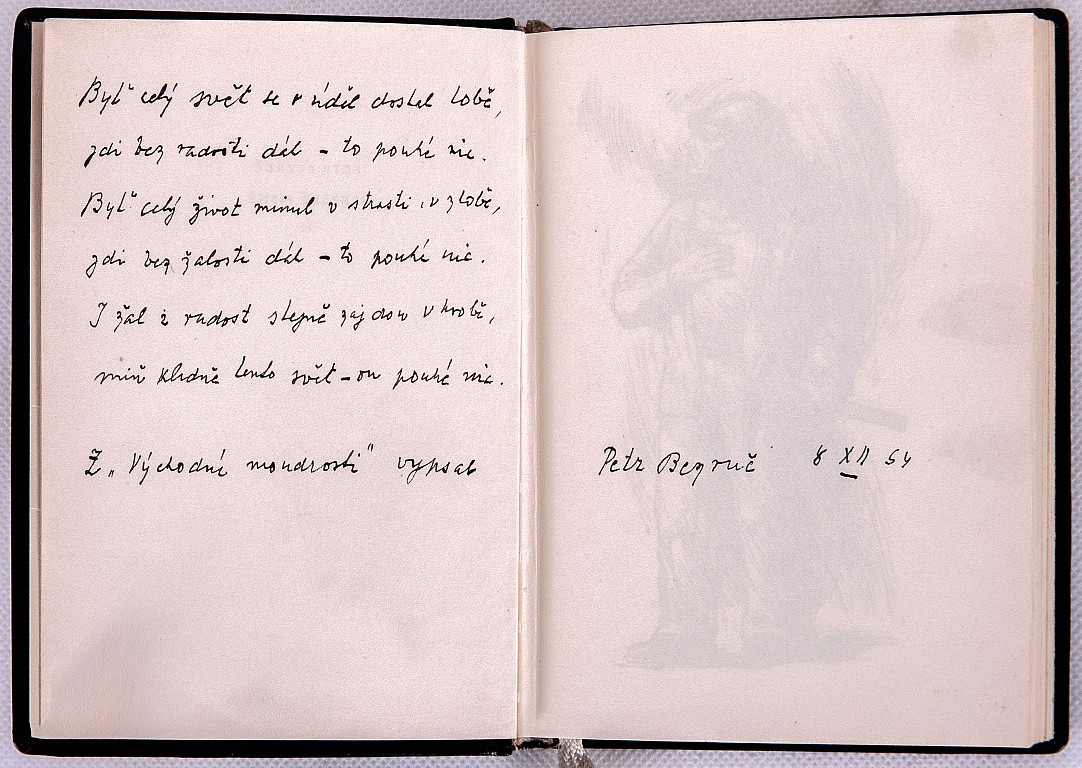 Byť celý svět se v úděl dostal tobě,
jdi bez radosti dál – to pouhé nic.
Byť celý život minul v strasti, v zlobě,
jdi bez žalosti dál – to pouhé nic.
I žal i radost stejně zajdou v hrobě,
miň klidně tento svět – on pouhé nic.
Z „Východní moudrosti" vypsal
Petr Bezruč 8 XII 54